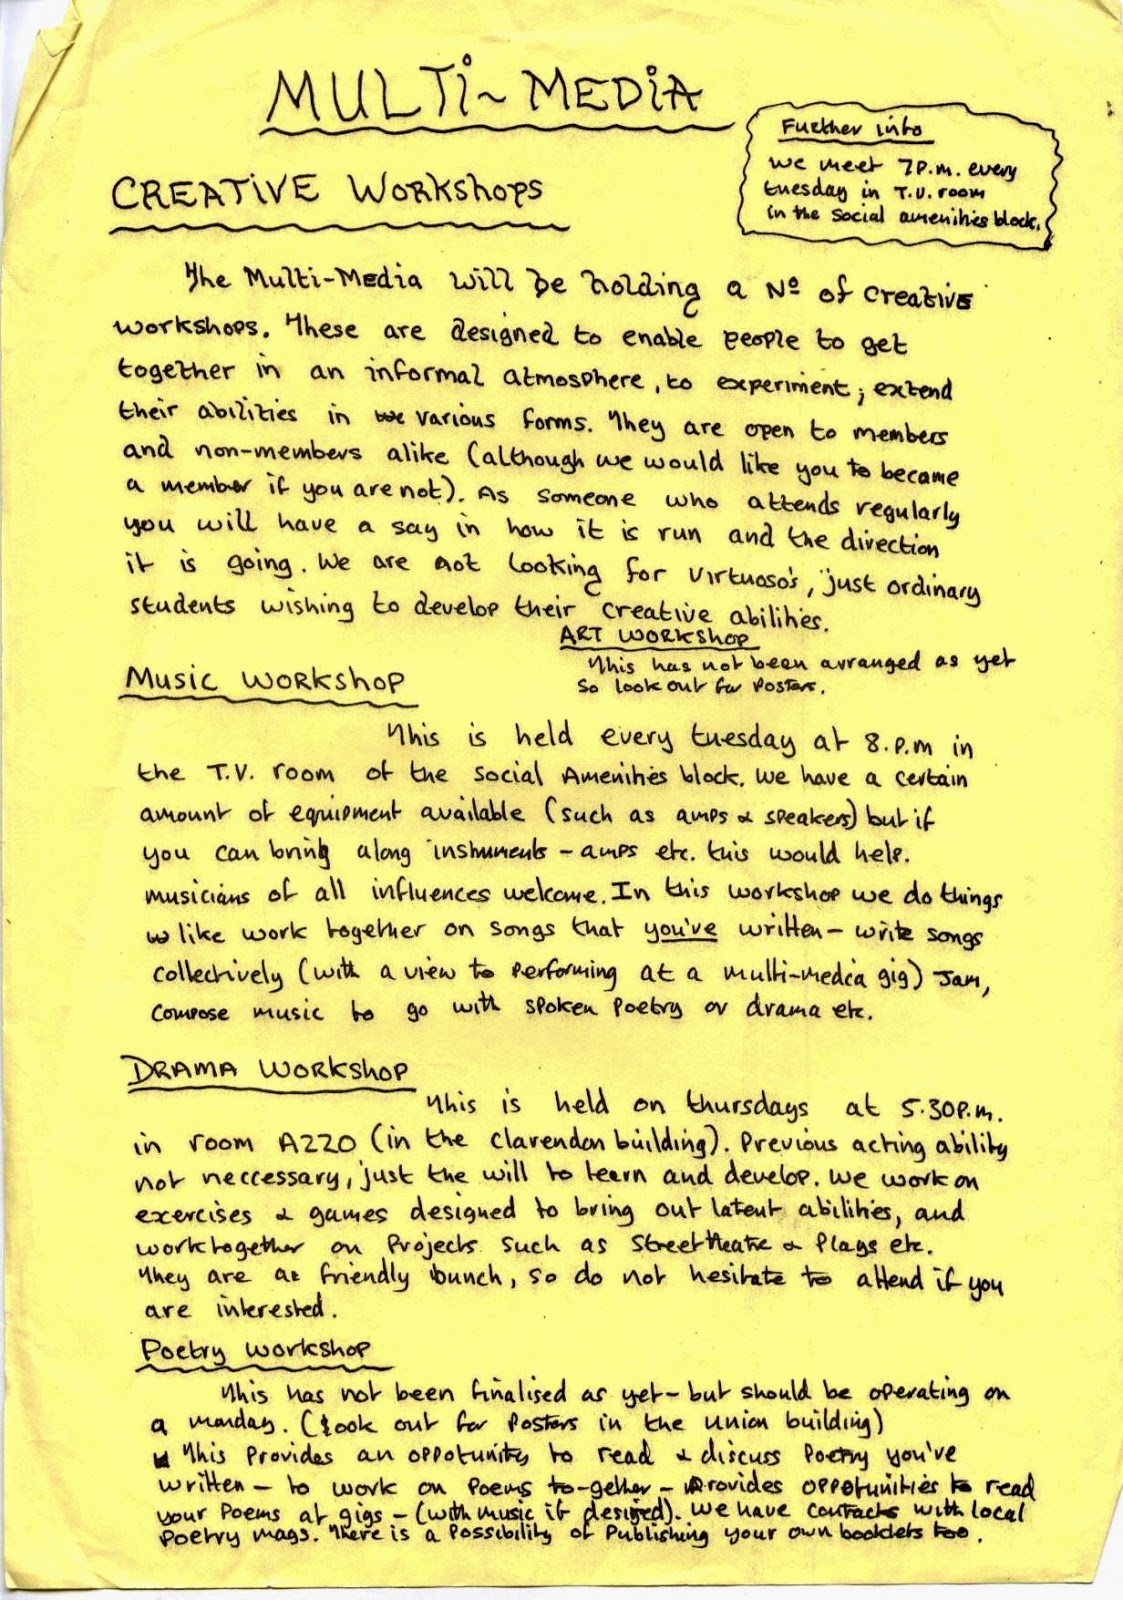 MULTI-MEDIA
Further info
we meet 7P.M. every
tuesday in T.V. room
in the social amenities block.
CREATIVE Workshops
The Multi-Media will be holding a Nº of creative
workshops. These are designed to enable people to get
together in an informal atmosphere, to experiment; extend
their abilities in various forms. They are open to members
and non-members alike (although we would like you to become
a member if you are not). As someone who attends regularly
you will have a say in how it is run and the direction
it is going. We are not looking for virtuoso's, just ordinary
students wishing to develop their creative abilities.
ART WORKSHOP
This has not been arranged as yet
so look out for posters.
Music WORKSHOP
This is held every tuesday at 8.p.m in
the T.V. room of the social Amenities block. We have a certain
amount of equipment available (such as amps & speakers) but if
you can bring along instruments - amps etc. this would help.
musicians of all influences welcome. In this workshop we do things
like work together on songs that you've written - write songs
collectively (with a view to performing at a multi-media gig) Jam,
compose music to go with spoken poetry or drama etc.
DRAMA WORKSHOP
This is held on thursdays at 5.30P.M.
in room A220 (in the clarendon building). Previous acting ability
not neccessary, just the will to learn and develop. We work on
exercises & games designed to bring out latent abilities, and
work together on Projects such as Street theatre & Plays etc.
They are a friendly bunch, so do not hesitate to attend if you
are interested.
Poetry workshop
This has not been finalised as yet - but should be operating on
a monday. (Look out for Posters in the union building)
This Provides an oppotunity to read & discuss Poetry you've
written - to work on Poems to-gether - Provides oppotunities to read
your Poems at gigs - (with music if desired). We have contacts with local
Poetry mags. There is a Possibility of Publishing your own booklets too.